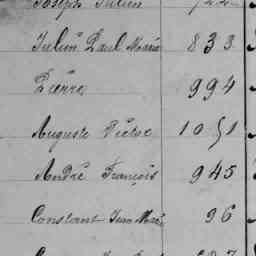 Joseph Julien
Julien Paul Marie 833
Pierre 994
Auguste Victor 1051
André François 945
Constant Jean Marie 96